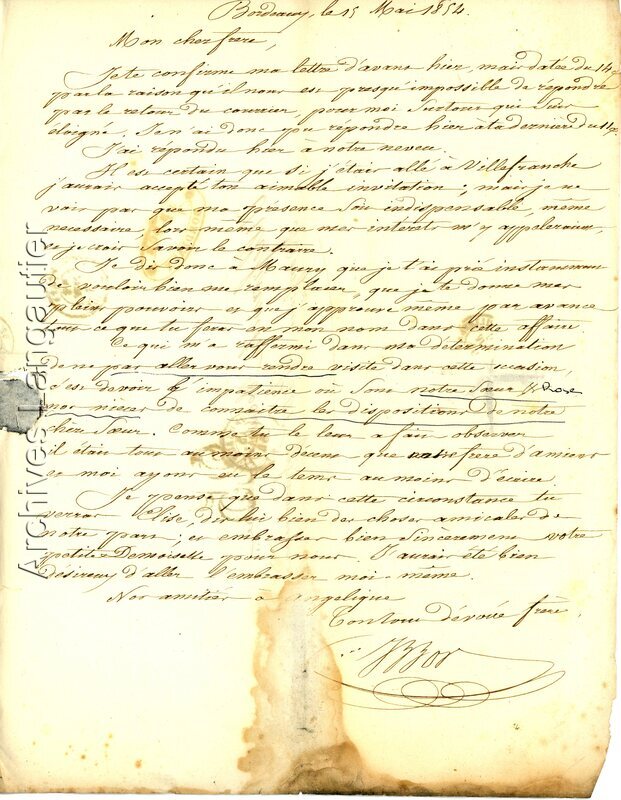 Bordeaux, le 15 Mai 1854.
Mon cher frère,
Je te confirme ma lettre d'avant hier, mais datée du 14,
par la raison qu'il nous est presqu'impossible de répondre
par le retour du courrier, pour moi surtout qui suis
éloigné. Je n'ai donc pu répondre hier à ta dernière du
J'ai répondu hier à notre neveu.
Il est certain que si j'étais allé à Villefranche
j'aurais accepté ton aimable invitation ; mais je ne
vois pas que ma présence soit indispensable, même
necessaire lors même que mes intérêts m'y appeleraient
je crois savoir le contraire.
Je dis donc à Maury que je t'ai prié instamment
de vouloir bien me remplacer, que je te donne mes
pleins pouvoirs et que j'approuve même par avance
tout ce que tu feras en mon nom dans cette affaire.
Ce qui m'a raffermi dans ma détermination
de ne pas aller vous rendre visite dans cette occasion,
c'est de voir l'impatience où sont notre Sœur Rose
nos nieces de connaitre les dispositions de notre
chère Sœur. Comme tu le leur a fait observer
il était tout au moins decent que notre frère d'Amiens
et moi ayons eu le tems au moins d'écrire.
Je pense que dans cette circonstance tu
verras Elise, dis lui bien des choses amicales de
notre part ; et embrasses bien sincerement votre
petite Demoiselle pour nous. J'aurais été bien
désireux d'aller l'embrasser moi-même.
Nos amitiés à Angelique
Ton tout dévoué frère,
Archives Langautier